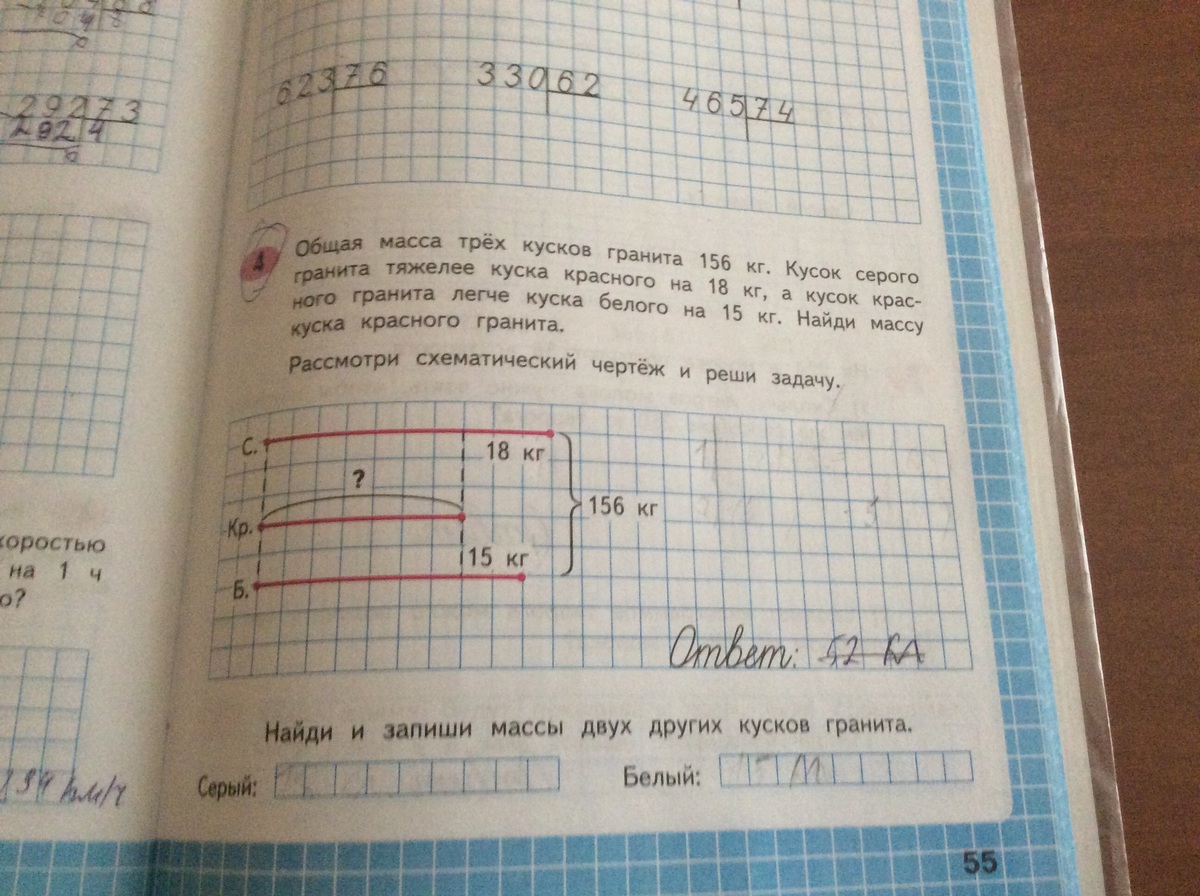 292 73
292 4
0
623 76
330 62
465 74
4
Общая масса трёх кусков гранита 156 кг. Кусок серого
гранита тяжелее куска красного на 18 кг, а кусок крас-
ного гранита легче куска белого на 15 кг. Найди массу
куска красного гранита.
Рассмотри схематический чертёж и реши задачу.
С.
18 кг
?
Кр.
156 кг
15 кг
Б.
Ответ: 52
коростью
на 1 ч
о?
Найди и запиши массы двух других кусков гранита.
Серый:
Белый:
км/ч
55